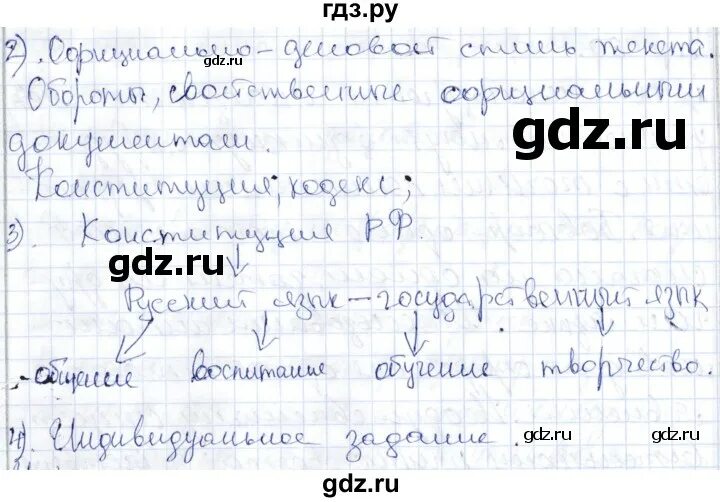 гдз.ру
2). Официально-деловой стиль текста.
gdz.ru
gdz.ru
Обороты, свойственные официальным
gdz.ru
документам.
Конституция; кодекс;
3). Конституция РФ.
gdz.ru
Русский язык - государственный язык
gdz.ru
- общение воспитание обучение творчество.
gdz.ru
4). Индивидуальное задание.
gdz.ru
gdz.ru
gdz.ru